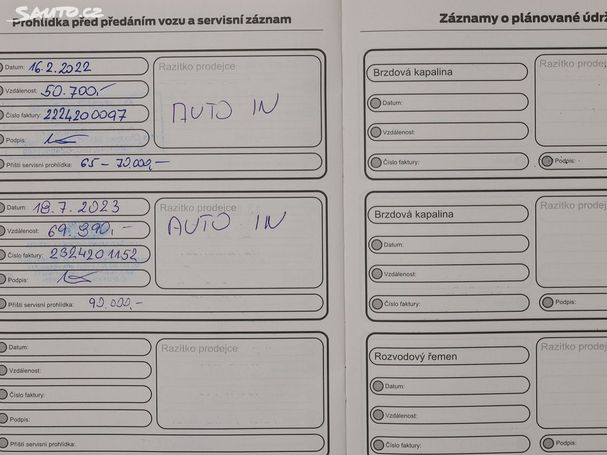 SAUTO.CZ
Prohlídka před předáním vozu a servisní záznam
Datum: 16.2.2022
Vzdálenost: 50.700,-
Číslo faktury: 2224200097
Podpis:
Příští servisní prohlídka: 65 - 70.000,-
Razítko prodejce
AUTO IN
Datum: 18.7.2023
Vzdálenost: 69.990,-
Číslo faktury: 2324201152
Podpis:
Příští servisní prohlídka: 90.000,-
Razítko prodejce
AUTO IN
Datum:
Vzdálenost:
Číslo faktury:
Podpis:
Příští servisní prohlídka:
Razítko prodejce
Záznamy o plánované údrž
Brzdová kapalina
Datum:
Vzdálenost:
Číslo faktury:
Razítko prod
Podpis:
Brzdová kapalina
Datum:
Vzdálenost:
Číslo faktury:
Razítko prod
Podpis:
Rozvodový řemen
Datum:
Vzdálenost:
Číslo faktury:
Razítko prod
Podpis: